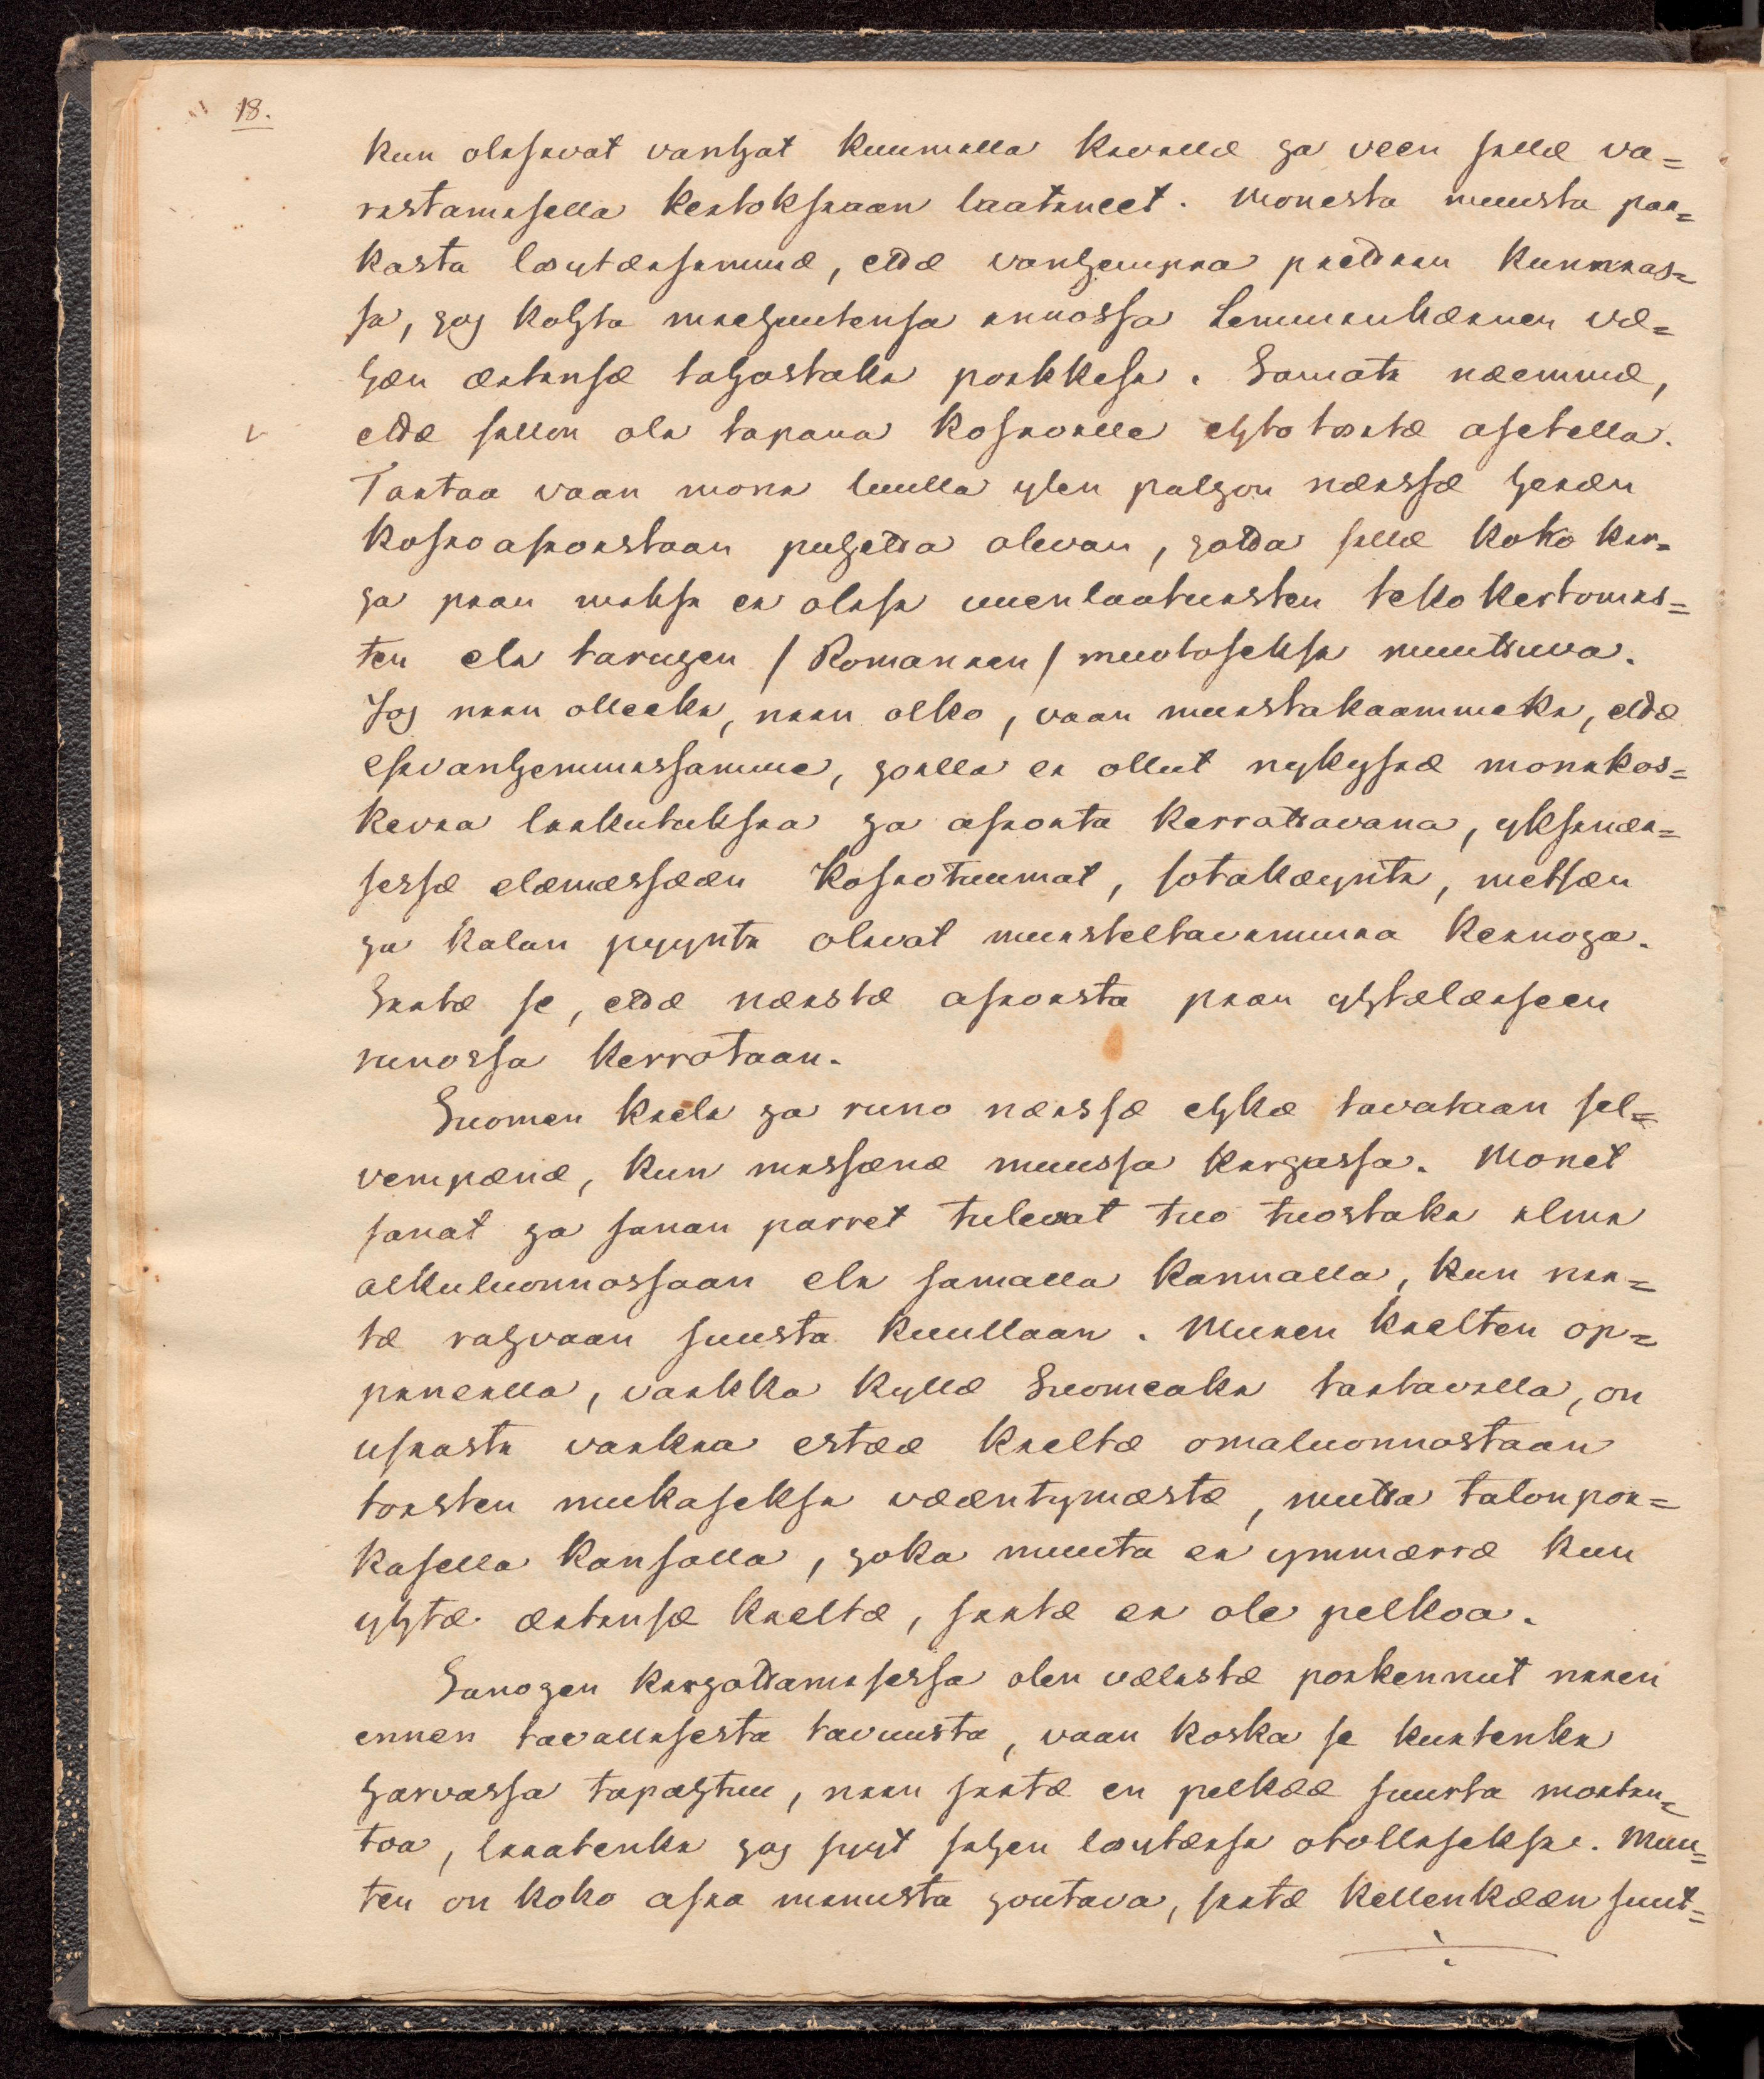 18.
kun olisivat vanhat kuumilla kivillä ja veen sillä va=
ristamisella keitoksiaan laatineet. Monesta muusta pai=
kasta löytäisimmä, että vanhempia piettiin kunnias=
sa, jos kohta miehuutensa innossa Lemminkäinen vä=
hän äitinsä tahostaki poikkesi. Samati näemmä,
että sillon oli tapana kosioille ehtotöitä asetella.
Taitaa vaan moni luulla ylen paljon näissä heiän
kosioasioistaan puhetta olevan, jotta sillä koko kir=
ja pian miksi ei olisi uuenlaatuisten tekokertomis=
ten eli tarujen /Romanien/ muotoseksi muuttuva.
Jos niin olleeki, niin olko, vaan muistakaammeki, että
esivanhemmissamme, joilla ei ollut nykysiä monikos=
kevia liikutuksia ja asioita kerrottavana, yksinäi=
sessä elämässään kosiotuumat, sotakäynti, metsän
ja kalan pyynti olivat muisteltavimmia keinoja.
Siitä se, että näistä asioista pian yhtäläiseen
runossa kerrotaan.
Suomen kieli ja runo näissä ehkä tavataan sel=
vempänä, kun missänä muussa kirjassa. Monet
sanat ja sanan parret tulevat tuo tuostaki ilmi
alkuluonnossaan eli samalla kannalla, kun nii=
tä rahvaan suusta kuullaan. Muien kielten op=
pineilla, vaikka kyllä Suomeaki taitavilla, on
usiasti vaikia estää kieltä omaluonnostaan
toisten mukaseksi vääntymästä, mutta talonpoi=
kasella kansalla, joka muuta ei ymmärrä kun
yhtä äitinsä kieltä, siitä ei ole pelkoa.
Sanojen kirjottamisessa olen välistä poikennut niien
ennen tavallisesta tavuusta, vaan koska se kuitenki
harvassa tapahtuu, niin siitä en pelkää suurta moitin=
toa, liiatenki jos syyt siihen löytäisi otolliseksi. Muu=
ten on koko asia minusta joutava, siitä kellenkään suut=